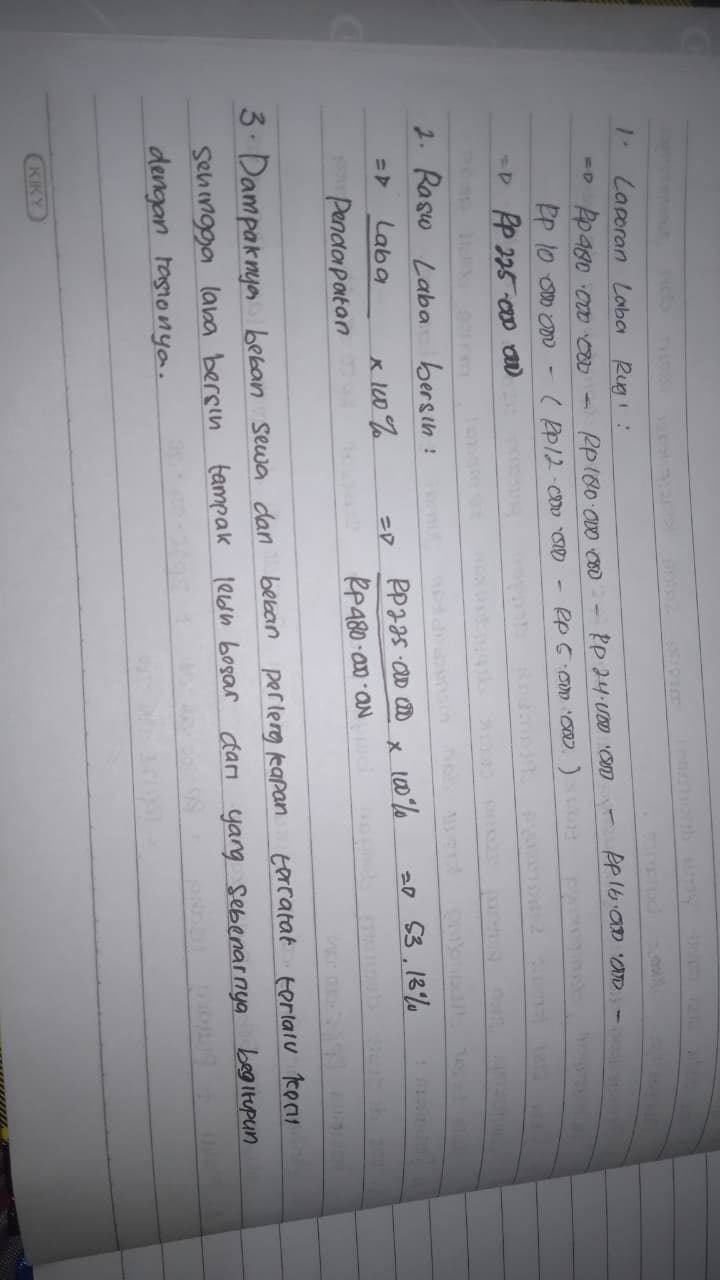 1. Laporan Laba Rugi :
=> Rp480.000.000 - Rp180.000.000 - Rp24.000.000 - Rp16.000.000 -
Rp 10.000.000 - ( Rp12.000.000 - Rp5.000.000 )
=> Rp 225.000.000
2. Rasio Laba bersih :
=> Laba x 100% => Rp225.000.000 x 100% => 53,13%
Pendapatan Rp480.000.000
3. Dampaknya beban sewa dan beban perlengkapan tercatat terlalu kecil
sehingga laba bersih tampak lebih besar dari yang sebenarnya begitupun
dengan rasionya.
KIKY